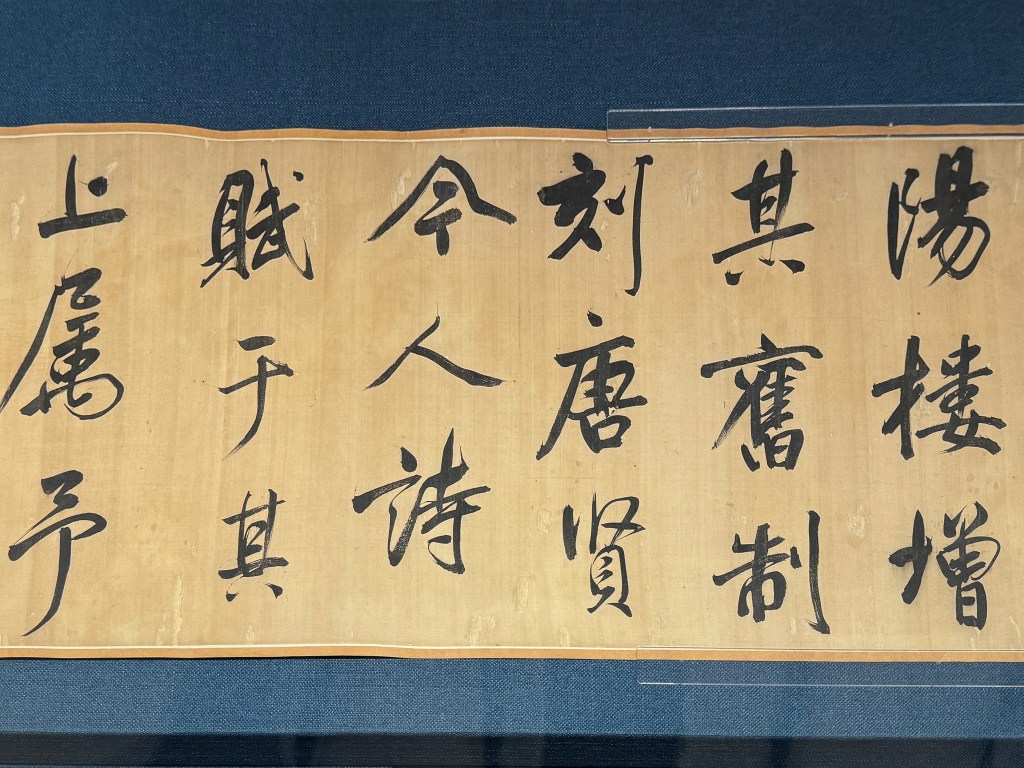 陽楼增
其舊制
刻唐贤
今人詩
賦于其
上属予